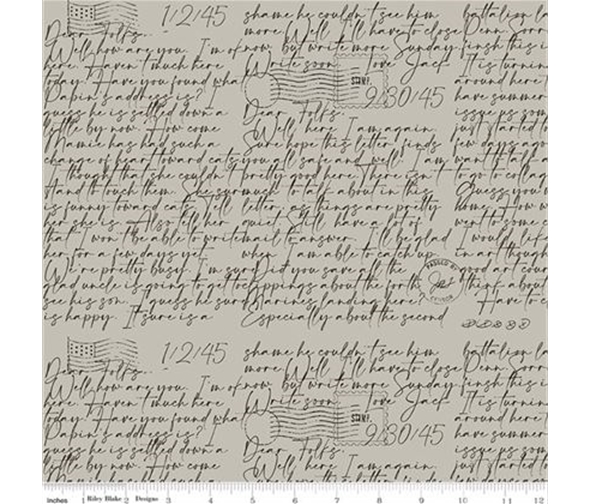 1/2/45
Dear Folks.
Well, how are you. I'm of
here. Haven't much here
today. Have you found wha
Papin's address is? I
guess he is settled down a
little by now. How come
Mamie has had such a
change of heart toward cats
I thought that she couldn't
stand to touch them. She sur
is funny toward cats. Tell
she is. Also tell her
that I won't be able to write
her for a few days yet.
We're pretty busy. I'm sur
glad uncle is going to get to
see his son. I guess he sur
is happy. It sure is a
shame he couldn't see him
more. Well I'll have to close
now but write more Sunday.
Write soon. Love Jack
STAMP
9/30/45
Dear Folks.
Well here I am again.
Sure hope this letter finds
you all safe and well. I am
pretty good here. There isn't
much to talk about in this
letter, as things are pretty
quiet. Still have a lot of
mail to answer. I'll be glad
when I am able to catch up.
Did you save all the
clippings about the forth
Marines landing here?
Especially about the second
battalion la
Penn. Sorr
finsh this i
It is turnin
around here
have summer
issue ps zom
just started to
few days ago
want to talk a
to go to collag
Guess you'r
home. How w
went to some c
I would lif
in art though
good art cour
think about
Have to c
PASSED BY
1/2/45
Dear Folks.
Well, how are you. I'm of
here. Haven't much here
today. Have you found wha
Papin's address is? I
guess he is settled down a
little by now. How come
shame he couldn't see him
more. Well I'll have to close
now but write more Sunday.
Write soon. Love Jack
STAMP
9/30/45
Dear Folks.
Well here I am again.
battalion la
Penn. Sorr
finsh this i
It is turnin
around here
have summer
issue ps zom
just started to
inches 1 Riley Blake 2 Designs 3 4 5 6 7 8 9 10 11 12